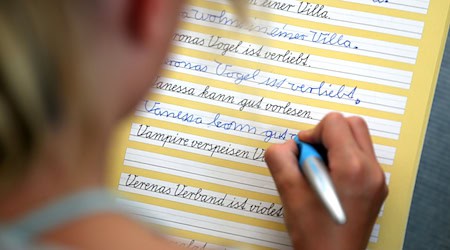 einer Villa.
wohnt in einer Villa.
ronas Vogel ist verliebt.
ronas Vogel ist verliebt.
Vanessa kann gut vorlesen.
Vanessa kann gut
Vampire verspeisen V
Verenas Verband ist violet